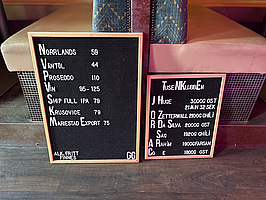 Norrlands 59
Vantol 44
Prosecco 110
Vin 95-125
Ship Full IPA 79
Krusovice 79
Mariestad Export 75
Alk.fritt
Finnes
GG
TuseNKlubbEn
J Huge 30000 GST
21 min 32 sek
O Zetterwall 21000 GST
R Da Silva 20000 GST
S Ag 19200
A Rahim
C E 18000 GST